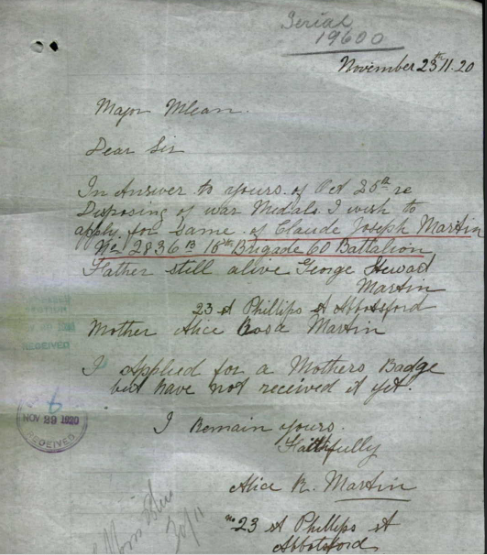 Serial
19600
November 25th 11.20
Major Mlean.
Dear Sir
In Answer to yours of Oct 25th re
Disposing of war Medals I wish to
apply for Same of Claude Joseph Martin
No 2836 B 15th Brigade 60 Battalion
Father still alive George Steward
Martin
23 St Phillips St Abbotsford
Mother Alice Rosa Martin
I Applied for a Mothers Badge
but have not received it yet.
I Remain yours.
Faithfully
Alice R. Martin
No 23 St Phillips St
Abbotsford
RECEIVED
NOV 1920
30/11